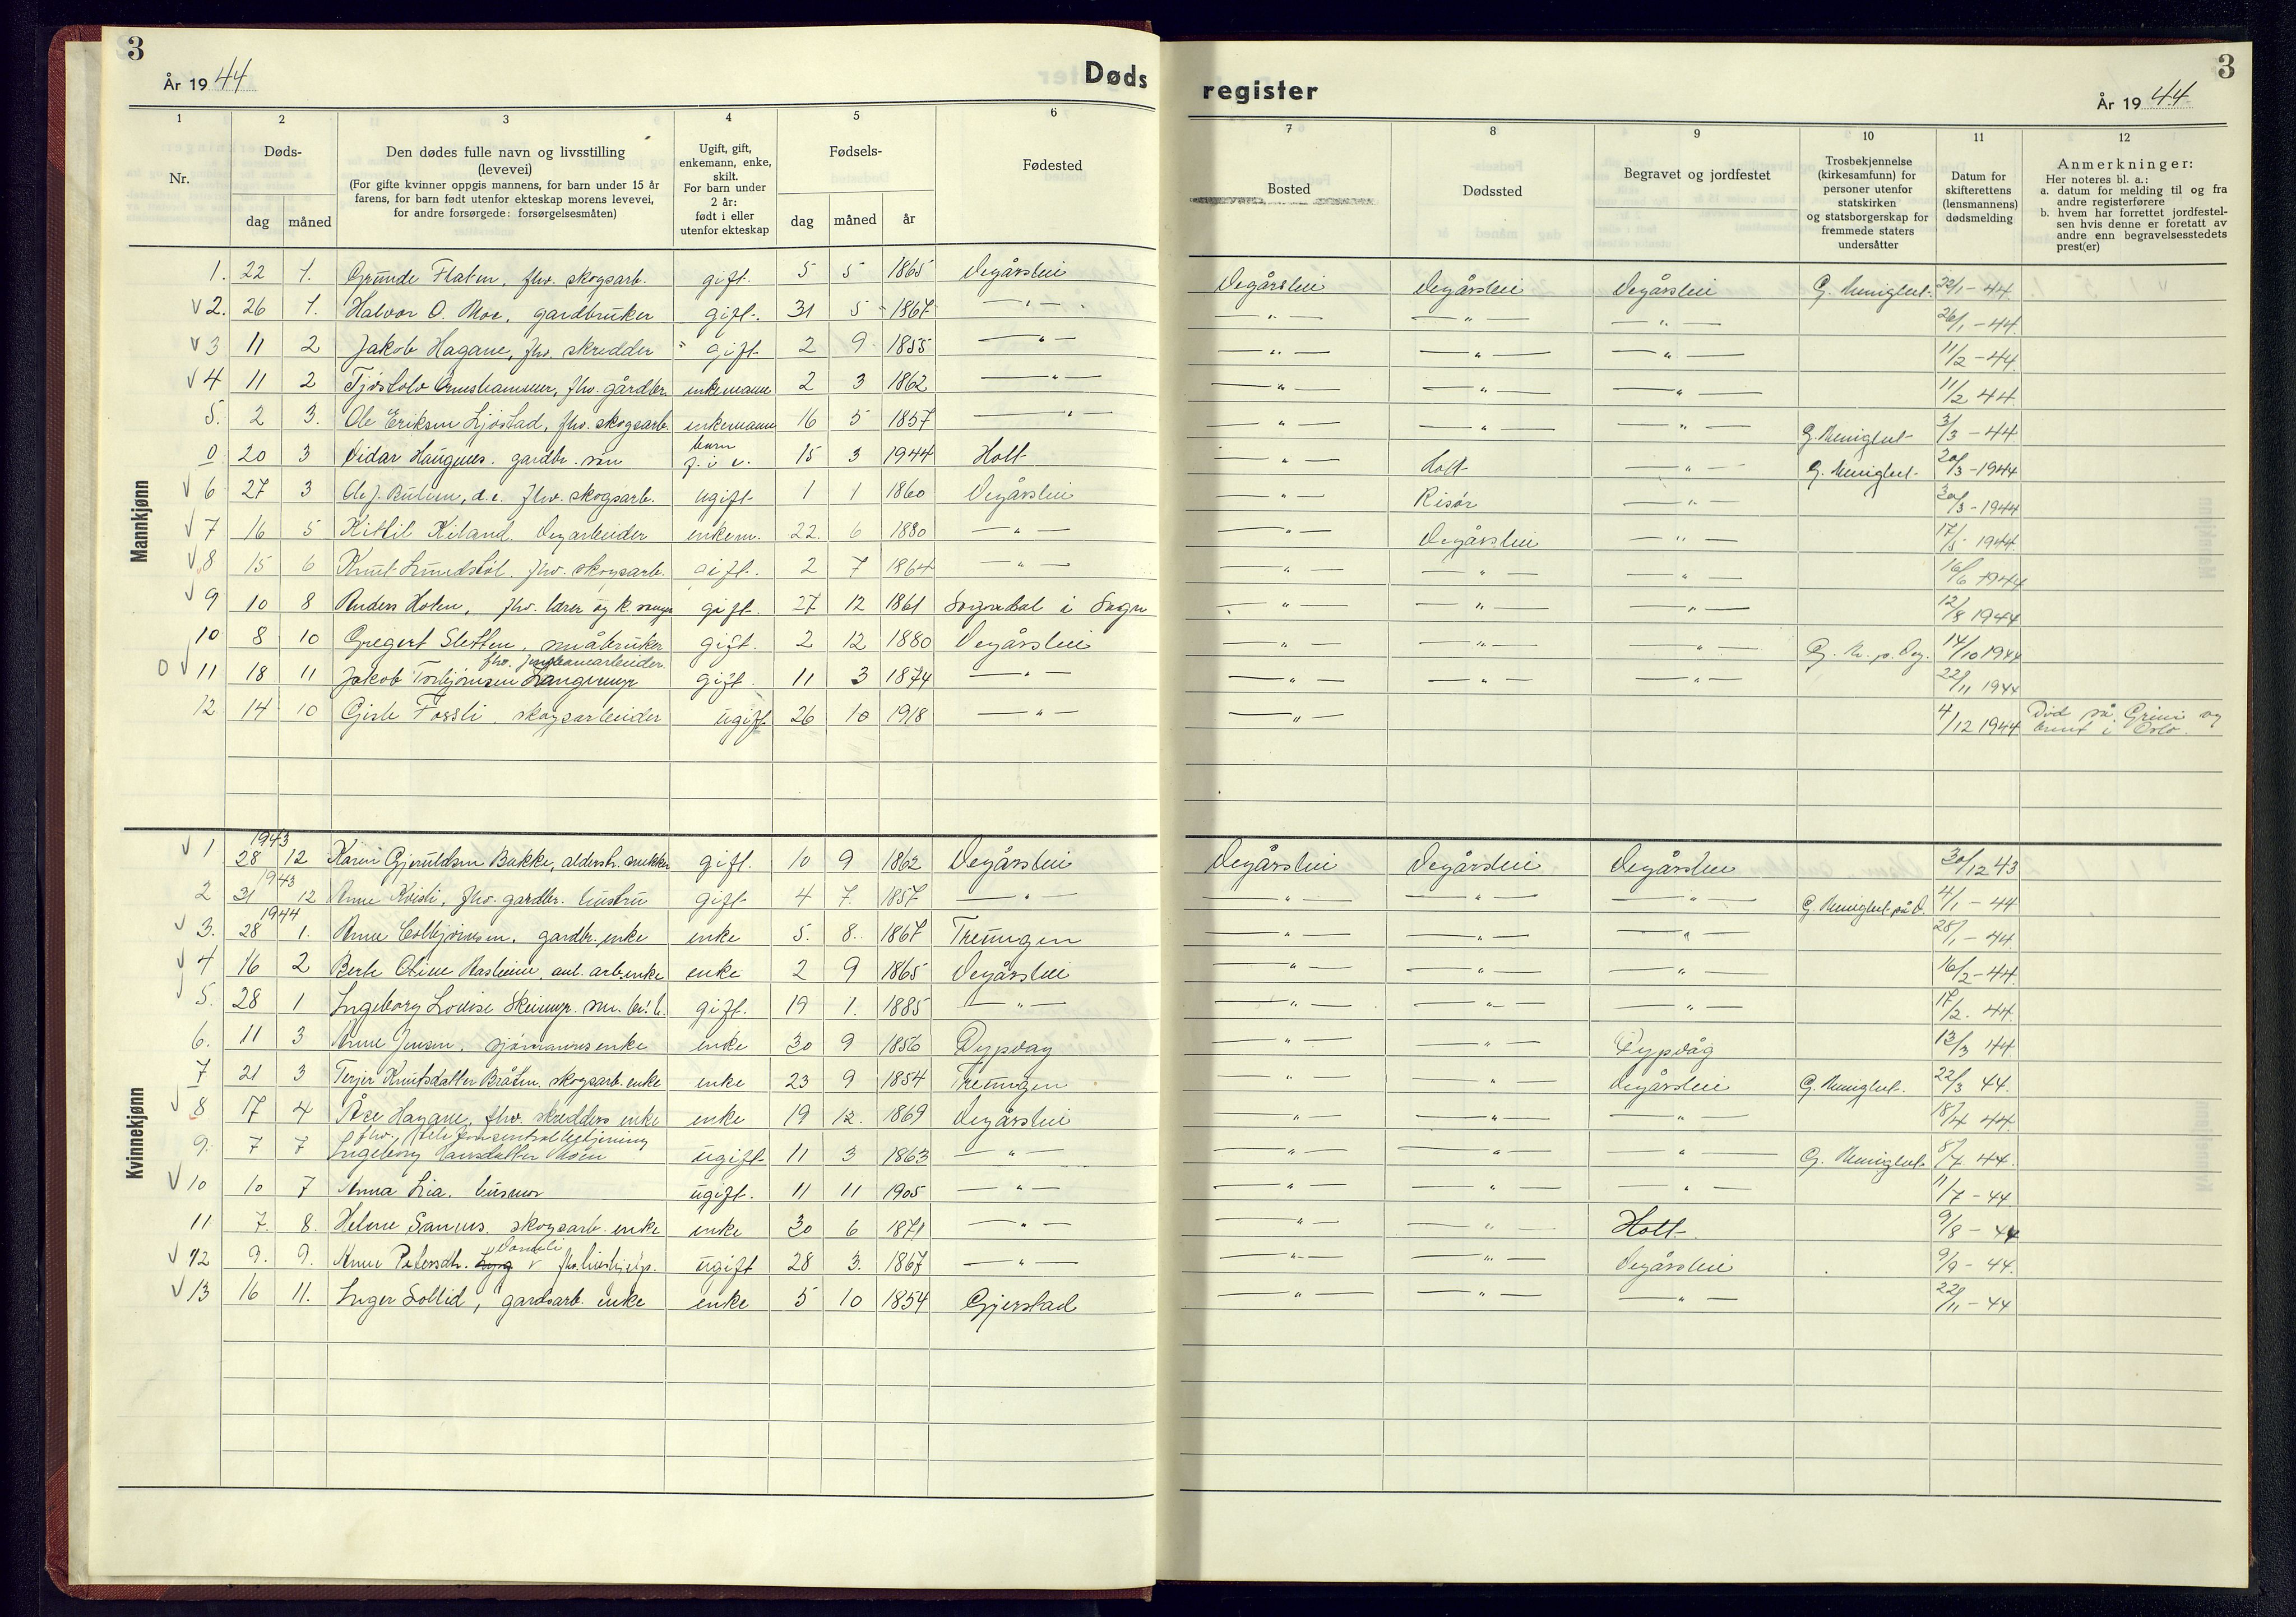 3
År 1944
Døds
register
År 1944
3
1
2
3
4
5
6
7
8
9
10
11
12
Nr.
Døds-
dag
måned
Den dødes fulle navn og livsstilling
(levevei)
(For gifte kvinner oppgis mannens, for barn under 15 år
farens, for barn født utenfor ekteskap morens levevei,
for andre forsørgede: forsørgelsesmåten)
Ugift, gift,
enkemann, enke,
skilt.
For barn under
2 år:
født i eller
utenfor ekteskap
Fødsels-
dag
måned
år
Fødested
Bosted
Dødssted
Begravet og jordfestet
Trosbekjennelse
(kirkesamfunn) for
personer utenfor
statskirken
og statsborgerskap for
fremmede staters
undersåtter
Datum for
skifterettens
(lensmannens)
dødsmelding
Anmerkninger:
Her noteres bl. a.:
a. datum for melding til og fra
andre registerførere
b. hvem har forrettet jordfestel-
sen hvis denne er foretatt av
andre enn begravelsesstedets
prest(er)
Mannkjønn
1. 22 1. Grunde Flaten, fhv. skogsarb. gift. 5 5 1865 Vegårshei Vegårshei Vegårshei Vegårshei G. Menighet. 22/1 - 44.
v 2. 26 1. Halvor O. Moe, gardbruker gift. 31 5 1867 —"— —"— —"— —"— 26/1 - 44.
v 3 11 2 Jakob Hagane, fhv. skredder gift 2 9 1855 —"— —"— —"— —"— 11/2 - 44.
v 4 11 2 Tjøstolv fhv. gårdbr. enkemann 2 3 1862 —"— —"— —"— —"— 11/2 44.
5. 2 3. Ole Eriksen Ljøstad, fhv. skogsarb. enkemann 16 5 1857 —"— —"— —"— —"— G. Menighet 3/3 - 44
0 20 3 Vidar Haugenes. gardbr. søn barn f. i e. 15 3 1944 Holt —"— Holt —"— G. Menighet 20/3 - 1944
v 6 27 3 Ole J. d.e. fhv. skogsarb. ugift 1 1 1860 Vegårshei —"— Risør —"— 30/3 - 1944
v 7 16 5 Kittil Kiland. Vegarbeider enkem. 22. 6 1880 —"— —"— Vegårshei —"— 17/5 1944.
v 8 15 6 Knut Lundstøl. fhv. skogsarb. gift. 2 7 1864 —"— —"— —"— —"— 16/6 1944
v 9 10 8 Anders Hoten, fhv. lærer og k. sanger gift. 27 12 1861 Sogndal i Sogn —"— —"— —"— 12/8 1944
10 8 10 Gregert Sletten, småbruker gift. 2 12 1880 Vegårshei —"— —"— —"— G. M. p. Veg. 14/10 1944
fhv. jernbanearbeider
0 v 11 18 11 Jakob Torbjørnsen Langmyr gift. 11 3 1874 —"— —"— —"— —"— 22/11 1944
12 14 10 Gisle Fossli. skogsarbeider ugift 26 10 1918 —"— —"— 4/12 1944 Død på Grini og
brent i Oslo.
Kvinnekjønn
1943
v 1 28 12 Karen Gjeruldsen Bakke, alderstr. gift. 10 9 1862 Vegårshei Vegårshei Vegårshei Vegårshei 30/12 43
1943
2 31 12 Anne Kvisli, fhv. gardbr. hustru gift 4 7. 1857 —"— —"— —"— —"— G. Menighet på V. 4/1 - 44
1944
v 3. 28 1. Anne Esbbjørnsen. gardbr. enke enke 5. 8. 1867 Treungen —"— —"— —"— 28/1 - 44
v 4 16 2 Berte Oline Aasheim, anl. arb. enke enke 2 9 1865 Vegårshei —"— —"— —"— 16/2 - 44.
5. 28 1 Ingeborg Lovise gift. 19 1. 1885 —"— —"— —"— —"— 17/2. 44.
6. 11 3 Anne Jensen. sjømannsenke enke 30 9 1856 Dypvag —"— —"— Dypvåg 13/3 44
7 21 3 Terjer Knutsdatter Bråten. skogsarb. enke enke 23 9 1854 Treungen —"— —"— Vegårshei G. Menighet. 22/3 44.
v 8 17 4 Åse Hagane, fhv. skredders enke enke 19 12. 1869 Vegårshei —"— —"— —"— 18/4 44.
fhv. telefonsentralbetjening
9. 7 7 Ingeborg Hansdatter Moen ugift 11 3 1863 —"— —"— —"— —"— G. Menighet 8/7 44.
v 10 10 7 Anna Lia. husmor ugift. 11 11 1905 —"— —"— —"— —"— 11/7 - 44
11 7. 8. Helene Sannes. skogsarb. enke enke 30 6 1871 —"— —"— —"— Holt. 9/8 - 44
v 12 9. 9. Anne Petersdtr. fhv. hushjelp. ugift 28 3. 1867 —"— —"— —"— Vegårshei 9/9 - 44.
v 13 16 11. Inger Sollid, gardsarb. enke enke 5 10 1854 Gjerstad —"— —"— —"— 22/11 - 44